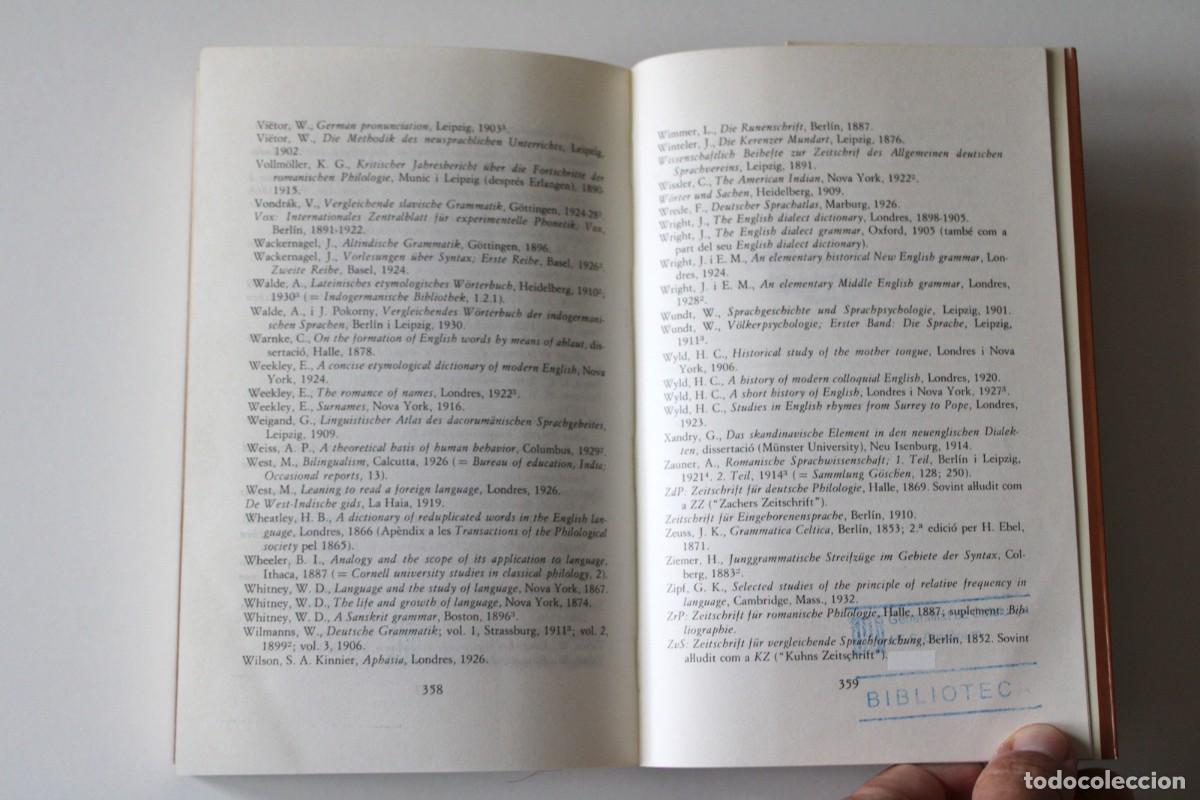 Viëtor, W., German pronunciation, Leipzig, 1903³.
Viëtor, W., Die Methodik des neusprachlichen Unterrichts, Leipzig,
1902.
Vollmöller, K. G., Kritischer Jahresbericht über die Fortschritte der
romanischen Philologie, Munic i Leipzig (després Erlangen), 1890-
1915.
Vondrák, V., Vergleichende slavische Grammatik, Göttingen, 1924-28².
Vox: Internationales Zentralblatt für experimentelle Phonetik; Vox,
Berlín, 1891-1922.
Wackernagel, J., Altindische Grammatik, Göttingen, 1896.
Wackernagel, J., Vorlesungen über Syntax; Erste Reihe, Basel, 1926².
Zweite Reihe, Basel, 1924.
Walde, A., Lateinisches etymologisches Wörterbuch, Heidelberg, 1910²;
1930³ (= Indogermanische Bibliothek, 1.2.1).
Walde, A., i J. Pokorny, Vergleichendes Wörterbuch der indogermani-
schen Sprachen, Berlín i Leipzig, 1930.
Warnke, C., On the formation of English words by means of ablaut, dis-
sertació, Halle, 1878.
Weekley, E., A concise etymological dictionary of modern English, Nova
York, 1924.
Weekley, E., The romance of names, Londres, 1922³.
Weekley, E., Surnames, Nova York, 1916.
Weigand, G., Linguistischer Atlas des dacorumänischen Sprachgebietes,
Leipzig, 1909.
Weiss, A. P., A theoretical basis of human behavior, Columbus, 1929².
West, M., Bilingualism, Calcutta, 1926 (= Bureau of education, India;
Occasional reports, 13).
West, M., Leaning to read a foreign language, Londres, 1926.
De West-Indische gids, La Haia, 1919.
Wheatley, H. B., A dictionary of reduplicated words in the English lan-
guage, Londres, 1866 (Apèndix a les Transactions of the Philological
society pel 1865).
Wheeler, B. I., Analogy and the scope of its application to language,
Ithaca, 1887 (= Cornell university studies in classical philology, 2).
Whitney, W. D., Language and the study of language, Nova York, 1867.
Whitney, W. D., The life and growth of language, Nova York, 1874.
Whitney, W. D., A Sanskrit grammar, Boston, 1896³.
Wilmanns, W., Deutsche Grammatik; vol. 1, Strassburg, 1911³; vol. 2,
1899²; vol. 3, 1906.
Wilson, S. A. Kinnier, Aphasia, Londres, 1926.
358
Wimmer, L., Die Runenschrift, Berlín, 1887.
Winteler, J., Die Kerenzer Mundart, Leipzig, 1876.
Wissenschaftlich Beihefte zur Zeitschrift des Allgemeinen deutschen
Sprachvereins, Leipzig, 1891.
Wissler, C., The American Indian, Nova York, 1922².
Wörter und Sachen, Heidelberg, 1909.
Wrede, F., Deutscher Sprachatlas, Marburg, 1926.
Wright, J., The English dialect dictionary, Londres, 1898-1905.
Wright, J., The English dialect grammar, Oxford, 1905 (també com a
part del seu English dialect dictionary).
Wright, J. i E. M., An elementary historical New English grammar, Lon-
dres, 1924.
Wright, J. i E. M., An elementary Middle English grammar, Londres,
1928².
Wundt, W., Sprachgeschichte und Sprachpsychologie, Leipzig, 1901.
Wundt, W., Völkerpsychologie; Erster Band: Die Sprache, Leipzig,
1911³.
Wyld, H. C., Historical study of the mother tongue, Londres i Nova
York, 1906.
Wyld, H. C., A history of modern colloquial English, Londres, 1920.
Wyld, H. C., A short history of English, Londres i Nova York, 1927³.
Wyld, H. C., Studies in English rhymes from Surrey to Pope, Londres,
1923.
Xandry, G., Das skandinavische Element in den neuenglischen Dialek-
ten, dissertació (Münster University), Neu Isenburg, 1914.
Zauner, A., Romanische Sprachwissenschaft; 1. Teil, Berlín i Leipzig,
1921⁴. 2. Teil, 1914³ (= Sammlung Göschen, 128; 250).
ZdP: Zeitschrift für deutsche Philologie, Halle, 1869. Sovint al·ludit com
a ZZ ("Zachers Zeitschrift").
Zeitschrift für Eingeborenensprache, Berlín, 1910.
Zeuss, J. K., Grammatica Celtica, Berlín, 1853; 2.ª edició per H. Ebel,
1871.
Ziemer, H., Junggrammatische Streifzüge im Gebiete der Syntax, Col-
berg, 1883².
Zipf, G. K., Selected studies of the principle of relative frequency in
language, Cambridge, Mass., 1932.
ZrP: Zeitschrift für romanische Philologie, Halle, 1887; suplement: Bib-
liographie.
ZvS: Zeitschrift für vergleichende Sprachforschung, Berlín, 1852. Sovint
al·ludit com a KZ ("Kuhns Zeitschrift").
359
BIBLIOTEC
todocoleccion